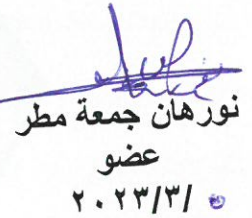 نورهان جمعة مطر
عضو
٢٠٢٣/٣/